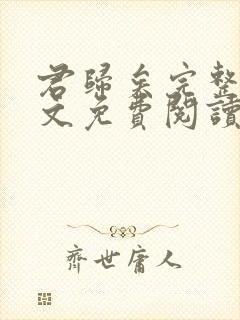 君歸矣完整
文免費閱讀
齊世庸人